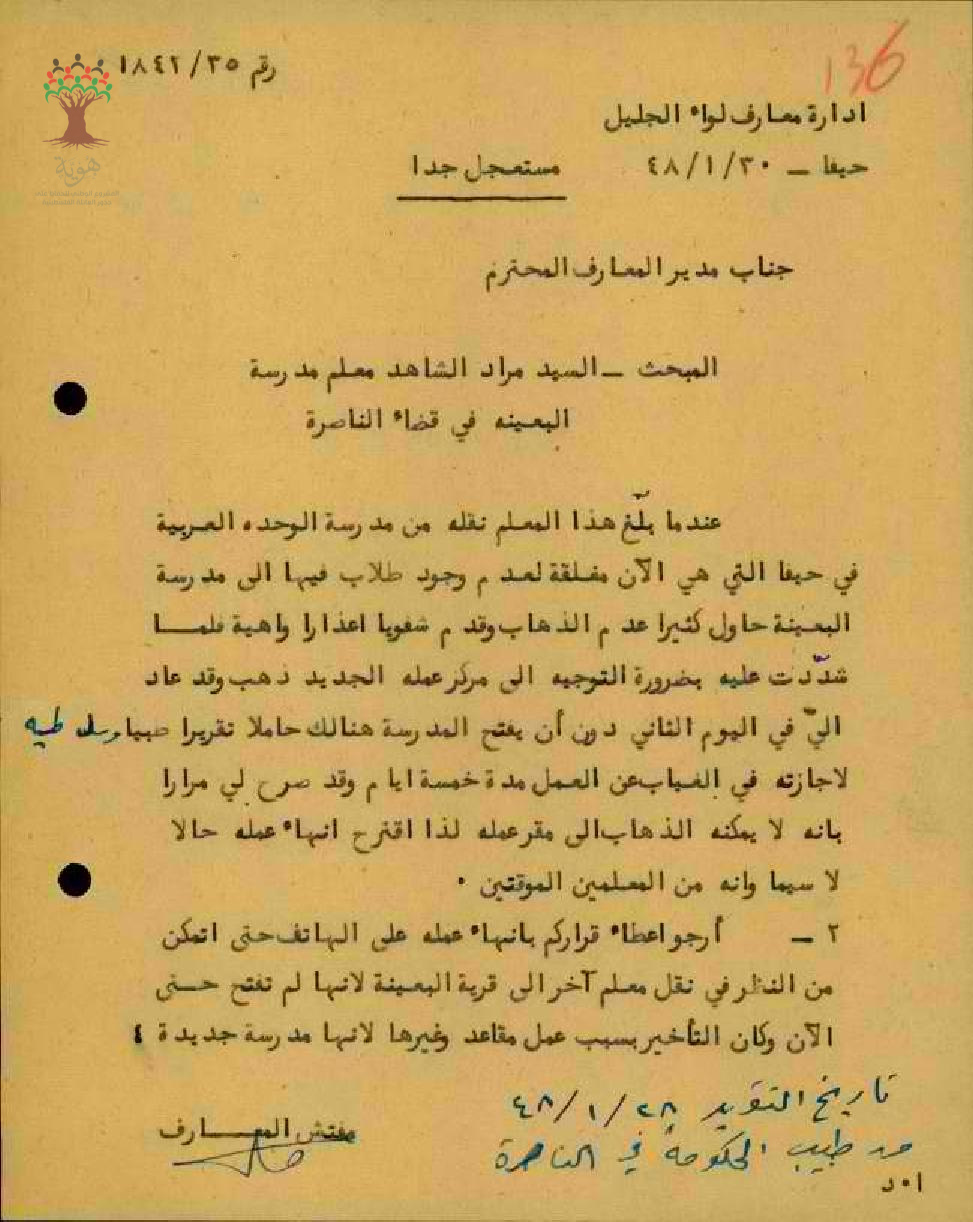 136
رقم ١٨٤٢/٣٥
هوية
ادارة معارف لواء الجليل
حيفا – ٤٨/١/٣٠ مستعجل جدا
جناب مدير المعارف المحترم
المبحث – السيد مراد الشاهد معلم مدرسة
البعينه في قضاء الناصرة
عندما بلّغ هذا المعلم نقله من مدرسة الوحده العربية
في حيفا التي هي الآن مغلقة لعدم وجود طلاب فيها الى مدرسة
البعينة حاول كثيرا عدم الذهاب وقدم شفويا اعذارا واهية فلما
شدّدت عليه بضرورة التوجيه الى مركز عمله الجديد ذهب وقد عاد
اليّ في اليوم الثاني دون أن يفتح المدرسة هنالك حاملا تقريرا طبيا
لاجازته في الغياب عن العمل مدة خمسة ايام وقد صرح لي مرارا
بانه لا يمكنه الذهاب الى مقر عمله لذا اقترح انهاء عمله حالا
لا سيما وانه من المعلمين الموقتين ٠
٢ – أرجو اعطاء قراركم بانهاء عمله على الهاتف حتى اتمكن
من النظر في نقل معلم آخر الى قرية البعينة لانها لم تفتح حتى
الآن وكان التأخير بسبب عمل مقاعد وغيرها لانها مدرسة جديدة ٤
تاريخ التقرير ٤٨/١/٢٨
مفتش المعارف
من طبيب الحكومة في الناصرة
ا٠د